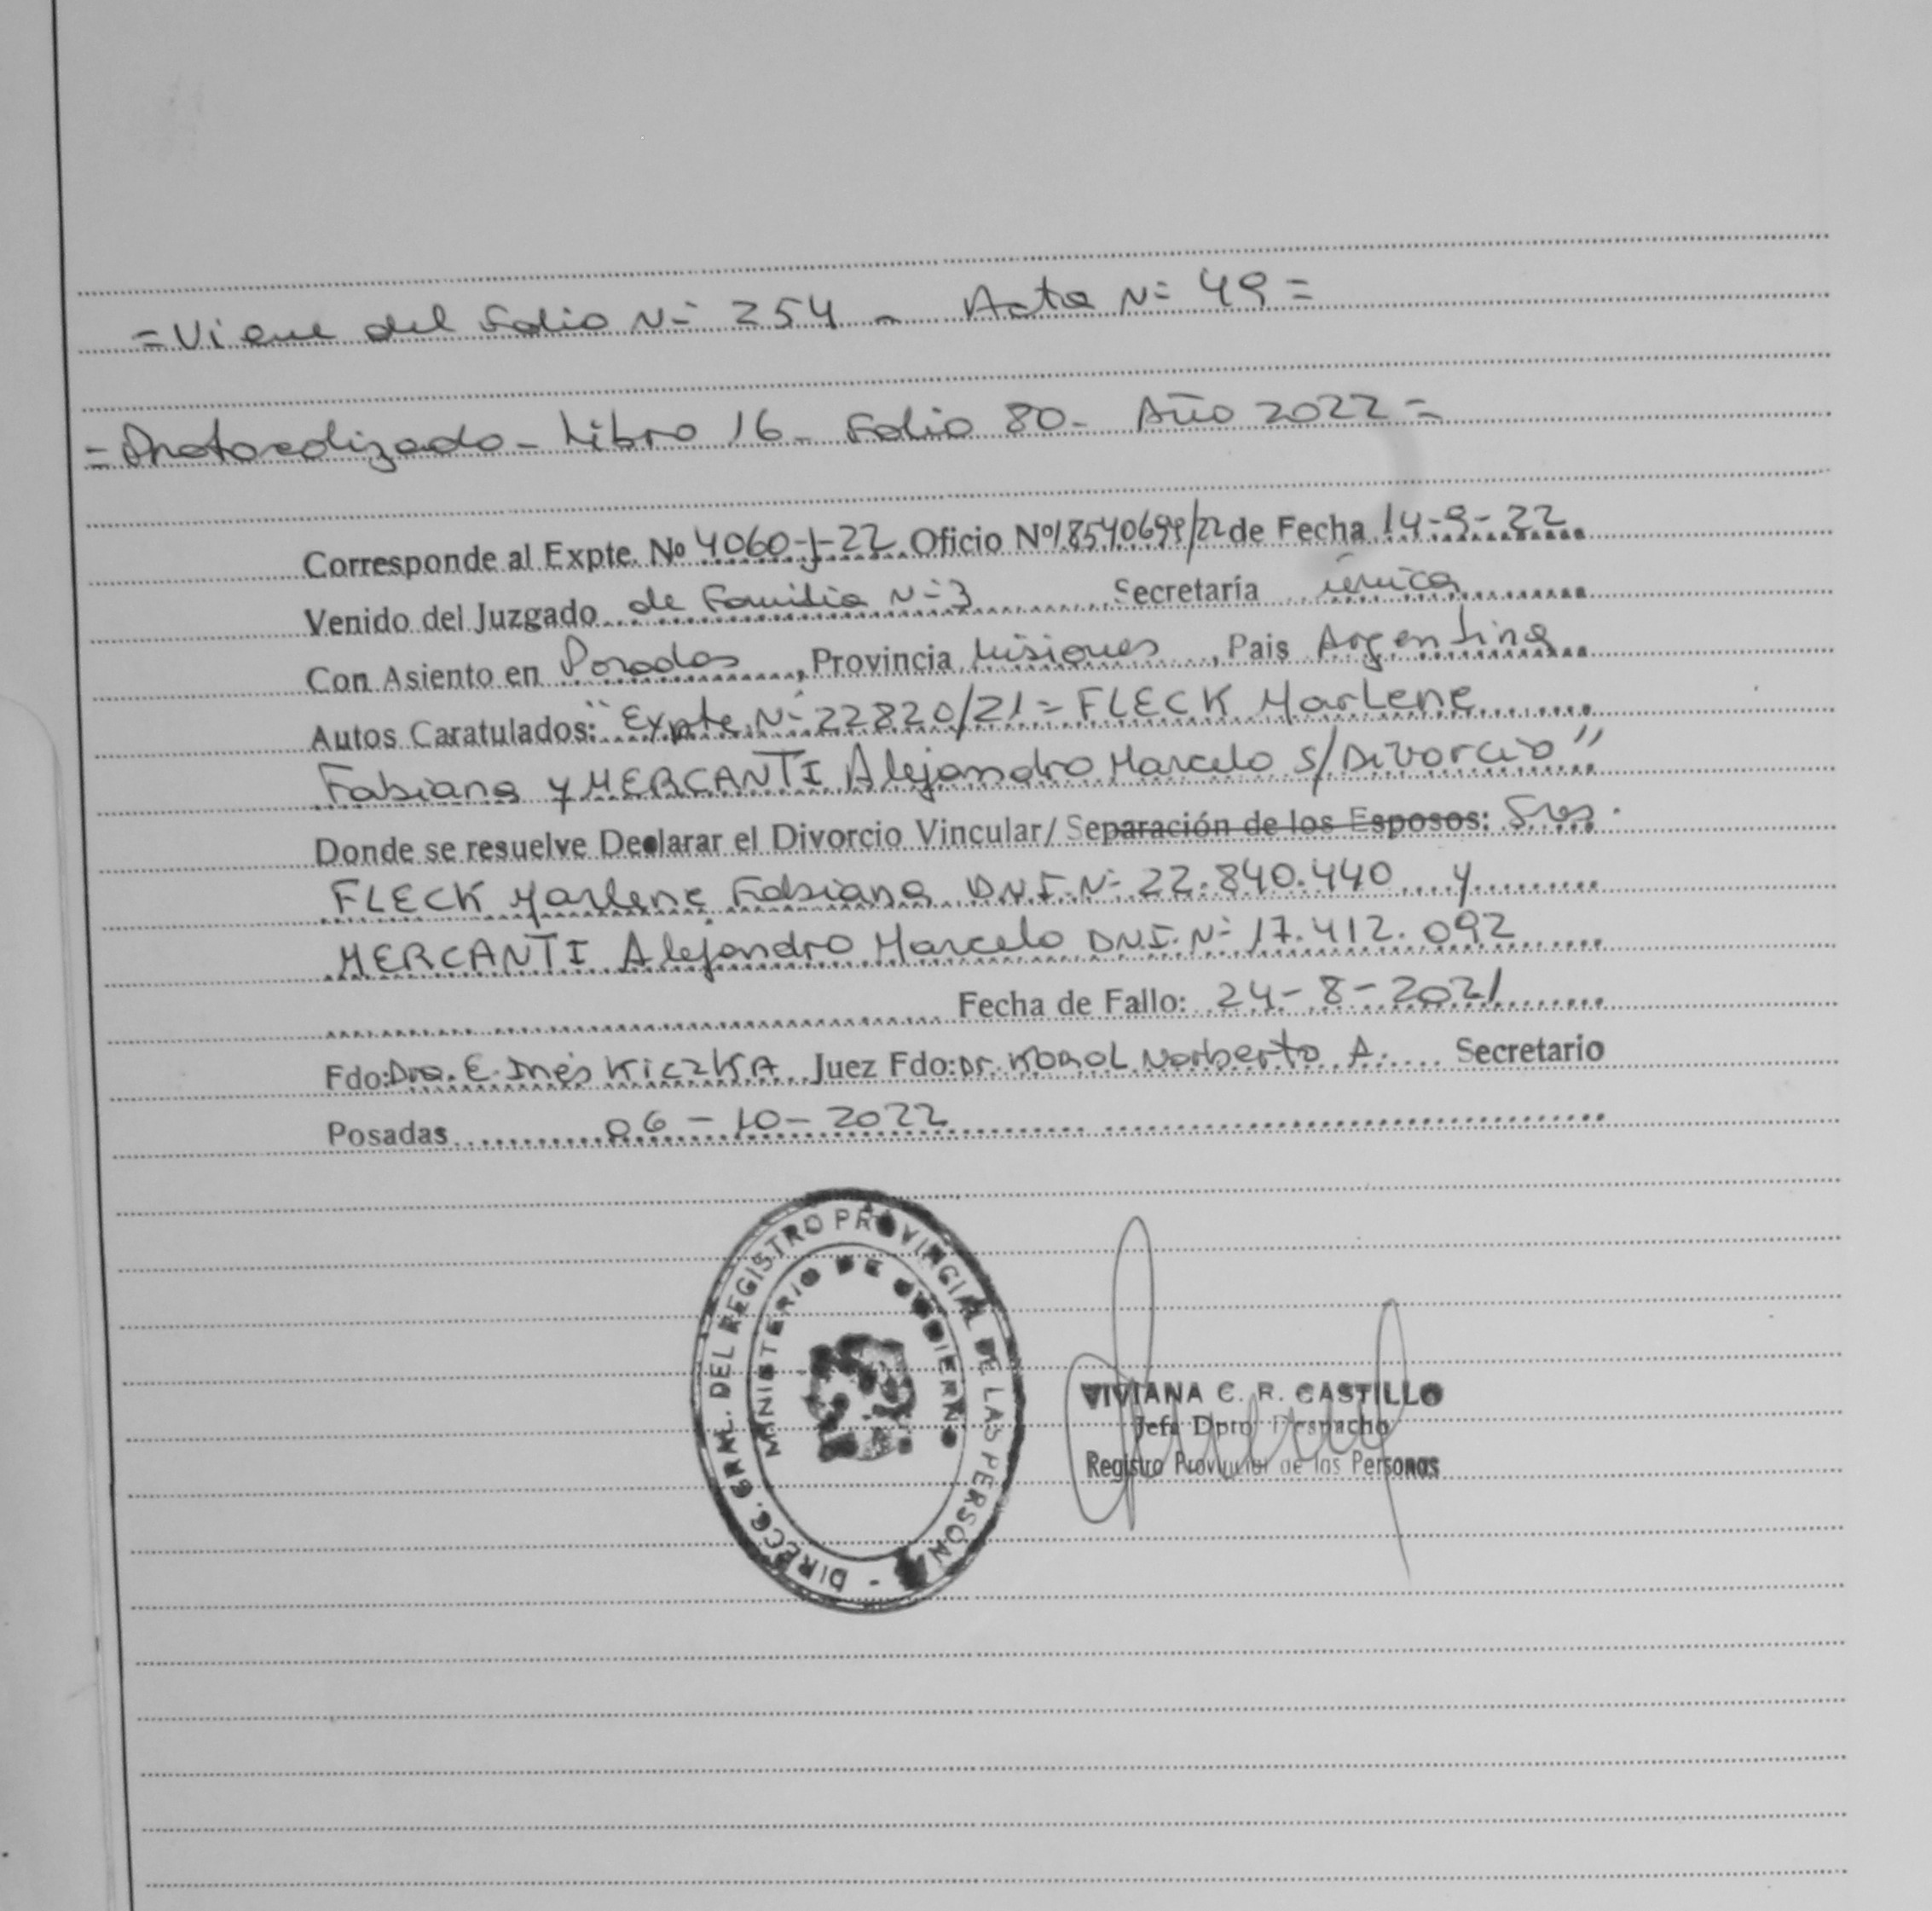 = Viene del Folio Nº 254 - Acta Nº 49 =
= Protocolizado - Libro 16 - Folio 80 - Año 2022 =
Corresponde al Expte. Nº 4060-J-22 Oficio Nº 18540699/22 de Fecha 14-9-22
Venido del Juzgado de Familia Nº 3 Secretaría única
Con Asiento en Posadas, Provincia Misiones, Pais Argentina
Autos Caratulados: "Expte Nº 22820/21 = FLECK Marlene
Fabiana y MERCANTI Alejandro Marcelo S/Divorcio"
Donde se resuelve Declarar el Divorcio Vincular/ Separación de los Esposos: Sres.
FLECK Marlene Fabiana D.N.I. Nº 22.840.440 y
MERCANTI Alejandro Marcelo D.N.I. Nº 17.412.092
Fecha de Fallo: 24-8-2021
Fdo: Dra. E. Inés KiczKA Juez Fdo: Dr. KOROL Norberto A. Secretario
Posadas 06-10-2022
DIRECC. GRAL. DEL REGISTRO PROVINCIAL DE LAS PERSONAS -
MINISTERIO DE GOBIERNO
VIVIANA C. R. CASTILLO
Jefa Dpto Despacho
Registro Provincial de las Personas